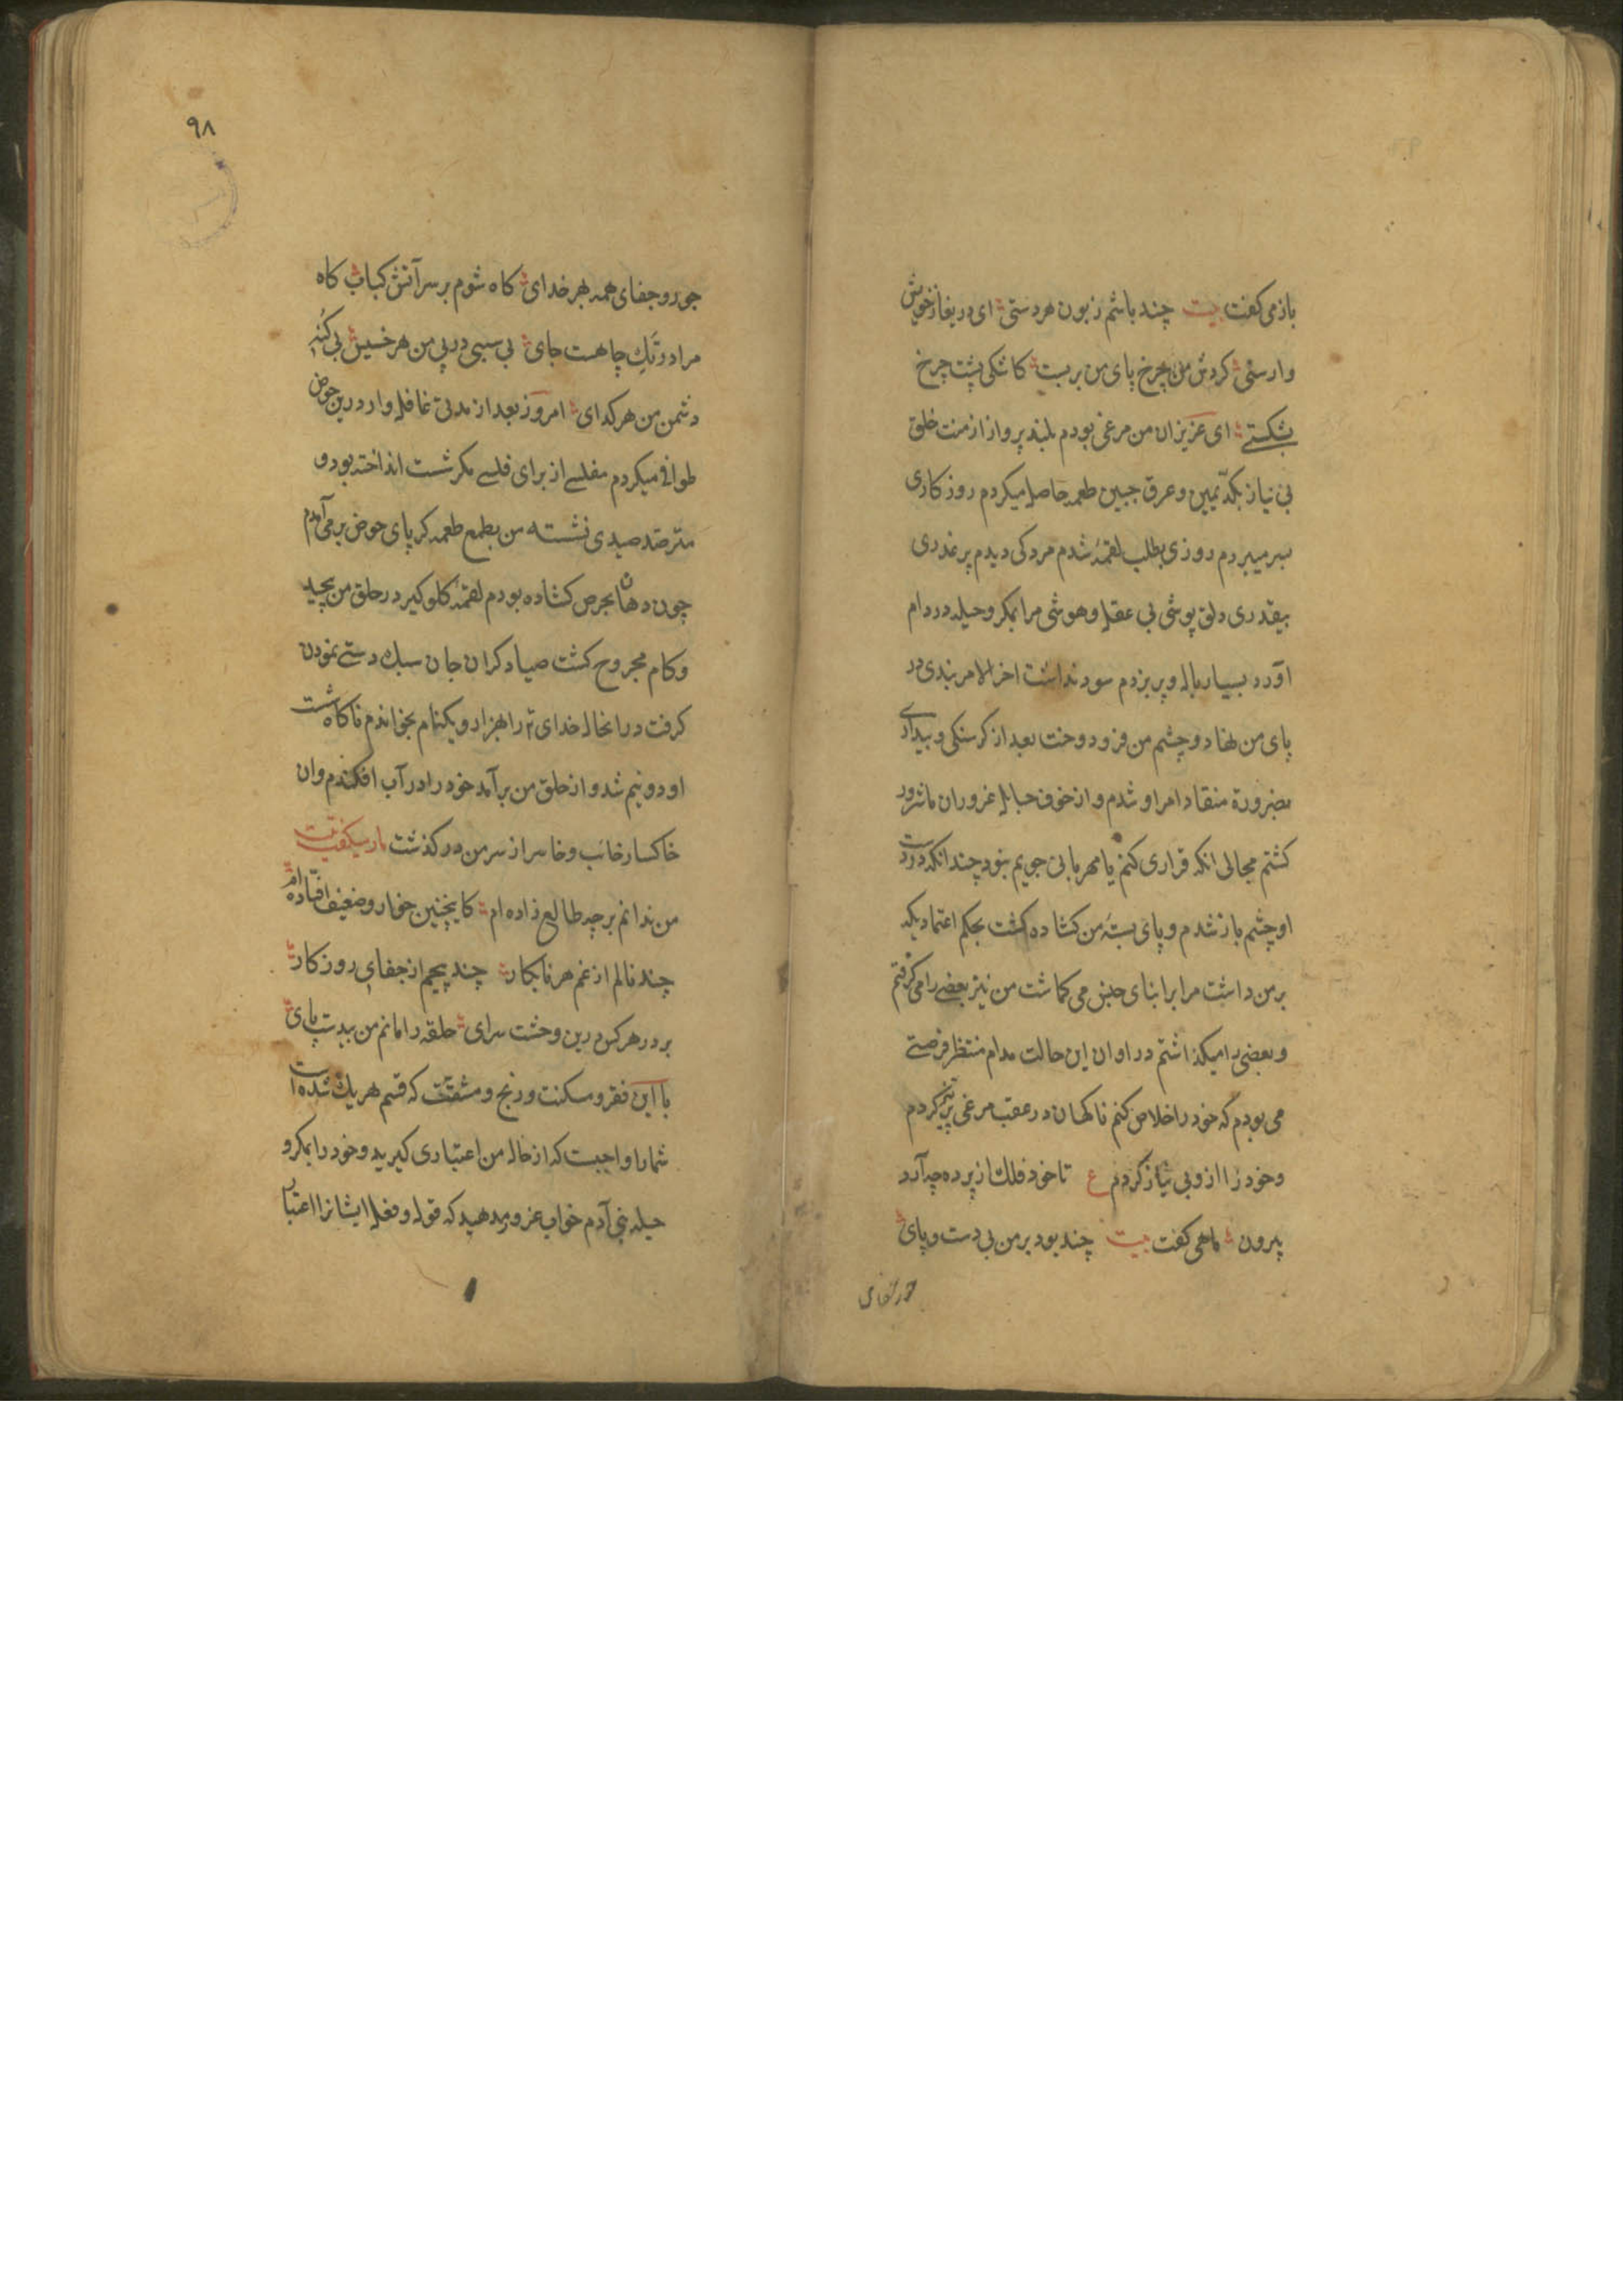 باز می کفت بیت چند باشم زبون هر دستی ای دریغا ز خویش
وارستی کردش من چرخ پای من بربست کاشکی پشت چرخ
بشکستی ای عزیزان من مرغی بودم بلند پرواز از منت خلق
بی نیاز بکدّ یمین و عرق جبین طعمه حاصل میکردم روزکاری
بسر میبردم روزی بطلب لقمهٔ شدم مردکی دیدم پر غدری
بیقدری دلق پوشی بی عقل و هوشی مرا بمکر و حیله در دام
آورد بسیار بال و پر بزدم سود نداشت اخر الامر بندی در
پای من نهاد و چشم من فرو دوخت بعد از کرسنکی و بیداری
بضرورة منقاد امر او شدم و از خوف حبایل غروران مانزور
کشتم مجالی انکه قراری کنم یا مهربانی جویم نبود چندانکه در دست
او چشم باز شدم و پای بستهٔ من کشاده کشت بحکم اعتمادیکه
بر من داشت مرا بر ابنای جنس می کماشت من نیز بعضی را می کرفتم
و بعضی را میکذاشتم در اوان این حالت مدام منتظر فرصتی
می بودم که خود را خلاص کنم ناکهان در عقب مرغی پر تیز کردم
و خود را از وبی نیاز کردم ع تا خود فلک از پرده چه آرد
بیرون ماهی کفت بیت چند بود بر من بی دست و پای
جور و جفای همه بهر خدای کاه شوم بر سر آتش کباب کاه
مرا در تک چاهست جای بی سببی در پی من هر خسیس بی کنه
دشمن من هر کدای امروز بعد از مدتی غافل وار درین حوض
طوافی میکردم مفلسی از برای فلسی مکر شست انداخته بود و
مترصد صیدی نشسته من بطمع طعمه کر پای حوض بر می آمدم
چون دهان بحرص کشاده بودم لقمهٔ کلوکیر در حلق من پیچید
و کام مجروح کشت صیاد کران جان سبک دستی نمودن
کرفت در انحال خدای را بهزار و یکنام بخواندم ناکاه شست
او دو نیم شد و از حلق من برآمد خود را در آب افکندم وان
خاکسار خائب و خاسر از سر من در کذشت مار میکفت بیت
من ندانم بر چه طالع زاده ام کاینچنین خوار و ضعیف افتاده ام
چند نالم از غم هر نابکار چند پیچم از جفای روزکار
بر در هر کس درین وحشت سرای حلقه را مانم من بیدست پای
با این فقر و مسکنت و رنج و مشقت که قسم هر یک شده است
شما را واجبست که از حال من اعتباری کیرید و خود را بمکر و
حیله بنی آدم خواب غرور مدهید که قول و فعل ایشانرا اعتبار
۹۸